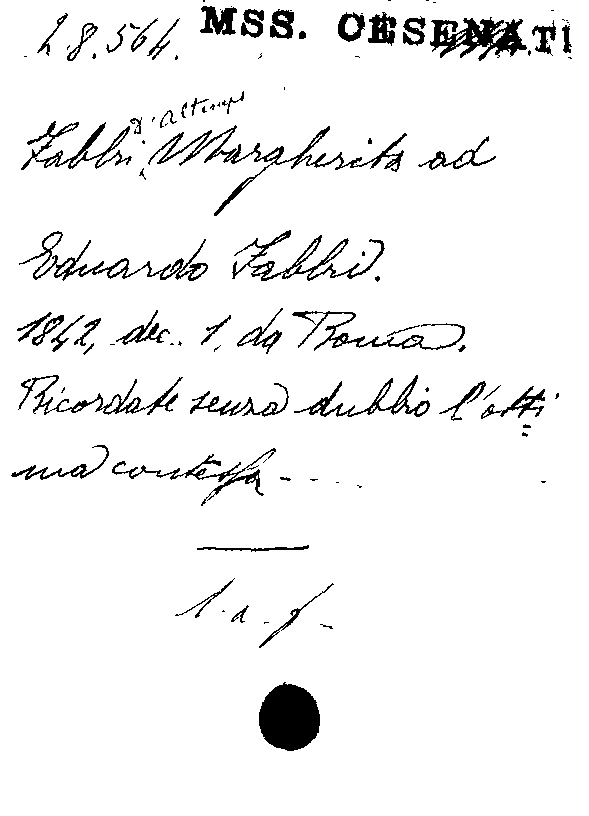 28.564. MSS. CESENATI
D'Altemps
Fabbri, Margherita ad
Eduardo Fabbri.
1842, dec. 1, da Roma.
Ricordate senza dubbio l'otti
ma contessa - ....
l. a. f.